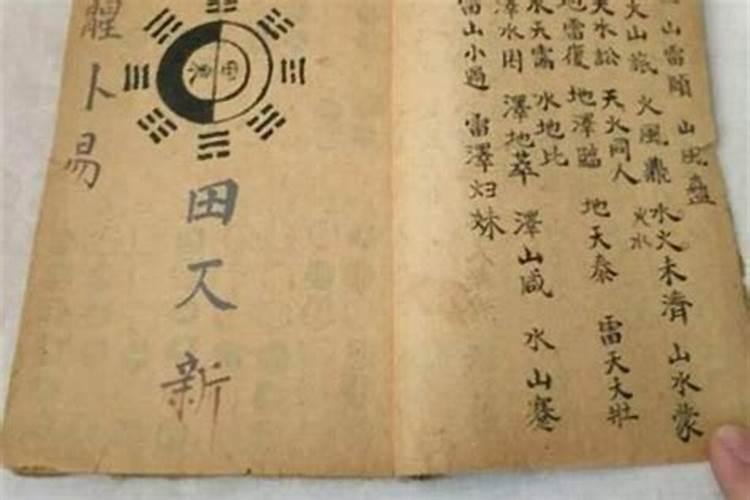 山雷頤
山風蠱
火山旅
火風鼎
水火未濟
火水
山水蒙
天水訟
天火同人
地雷復
地澤臨
地天泰
雷天大壯
水天需
水地比
澤水困
澤地萃
澤山咸
水山蹇
雷山小過
雷澤归妹
田 新
卜易